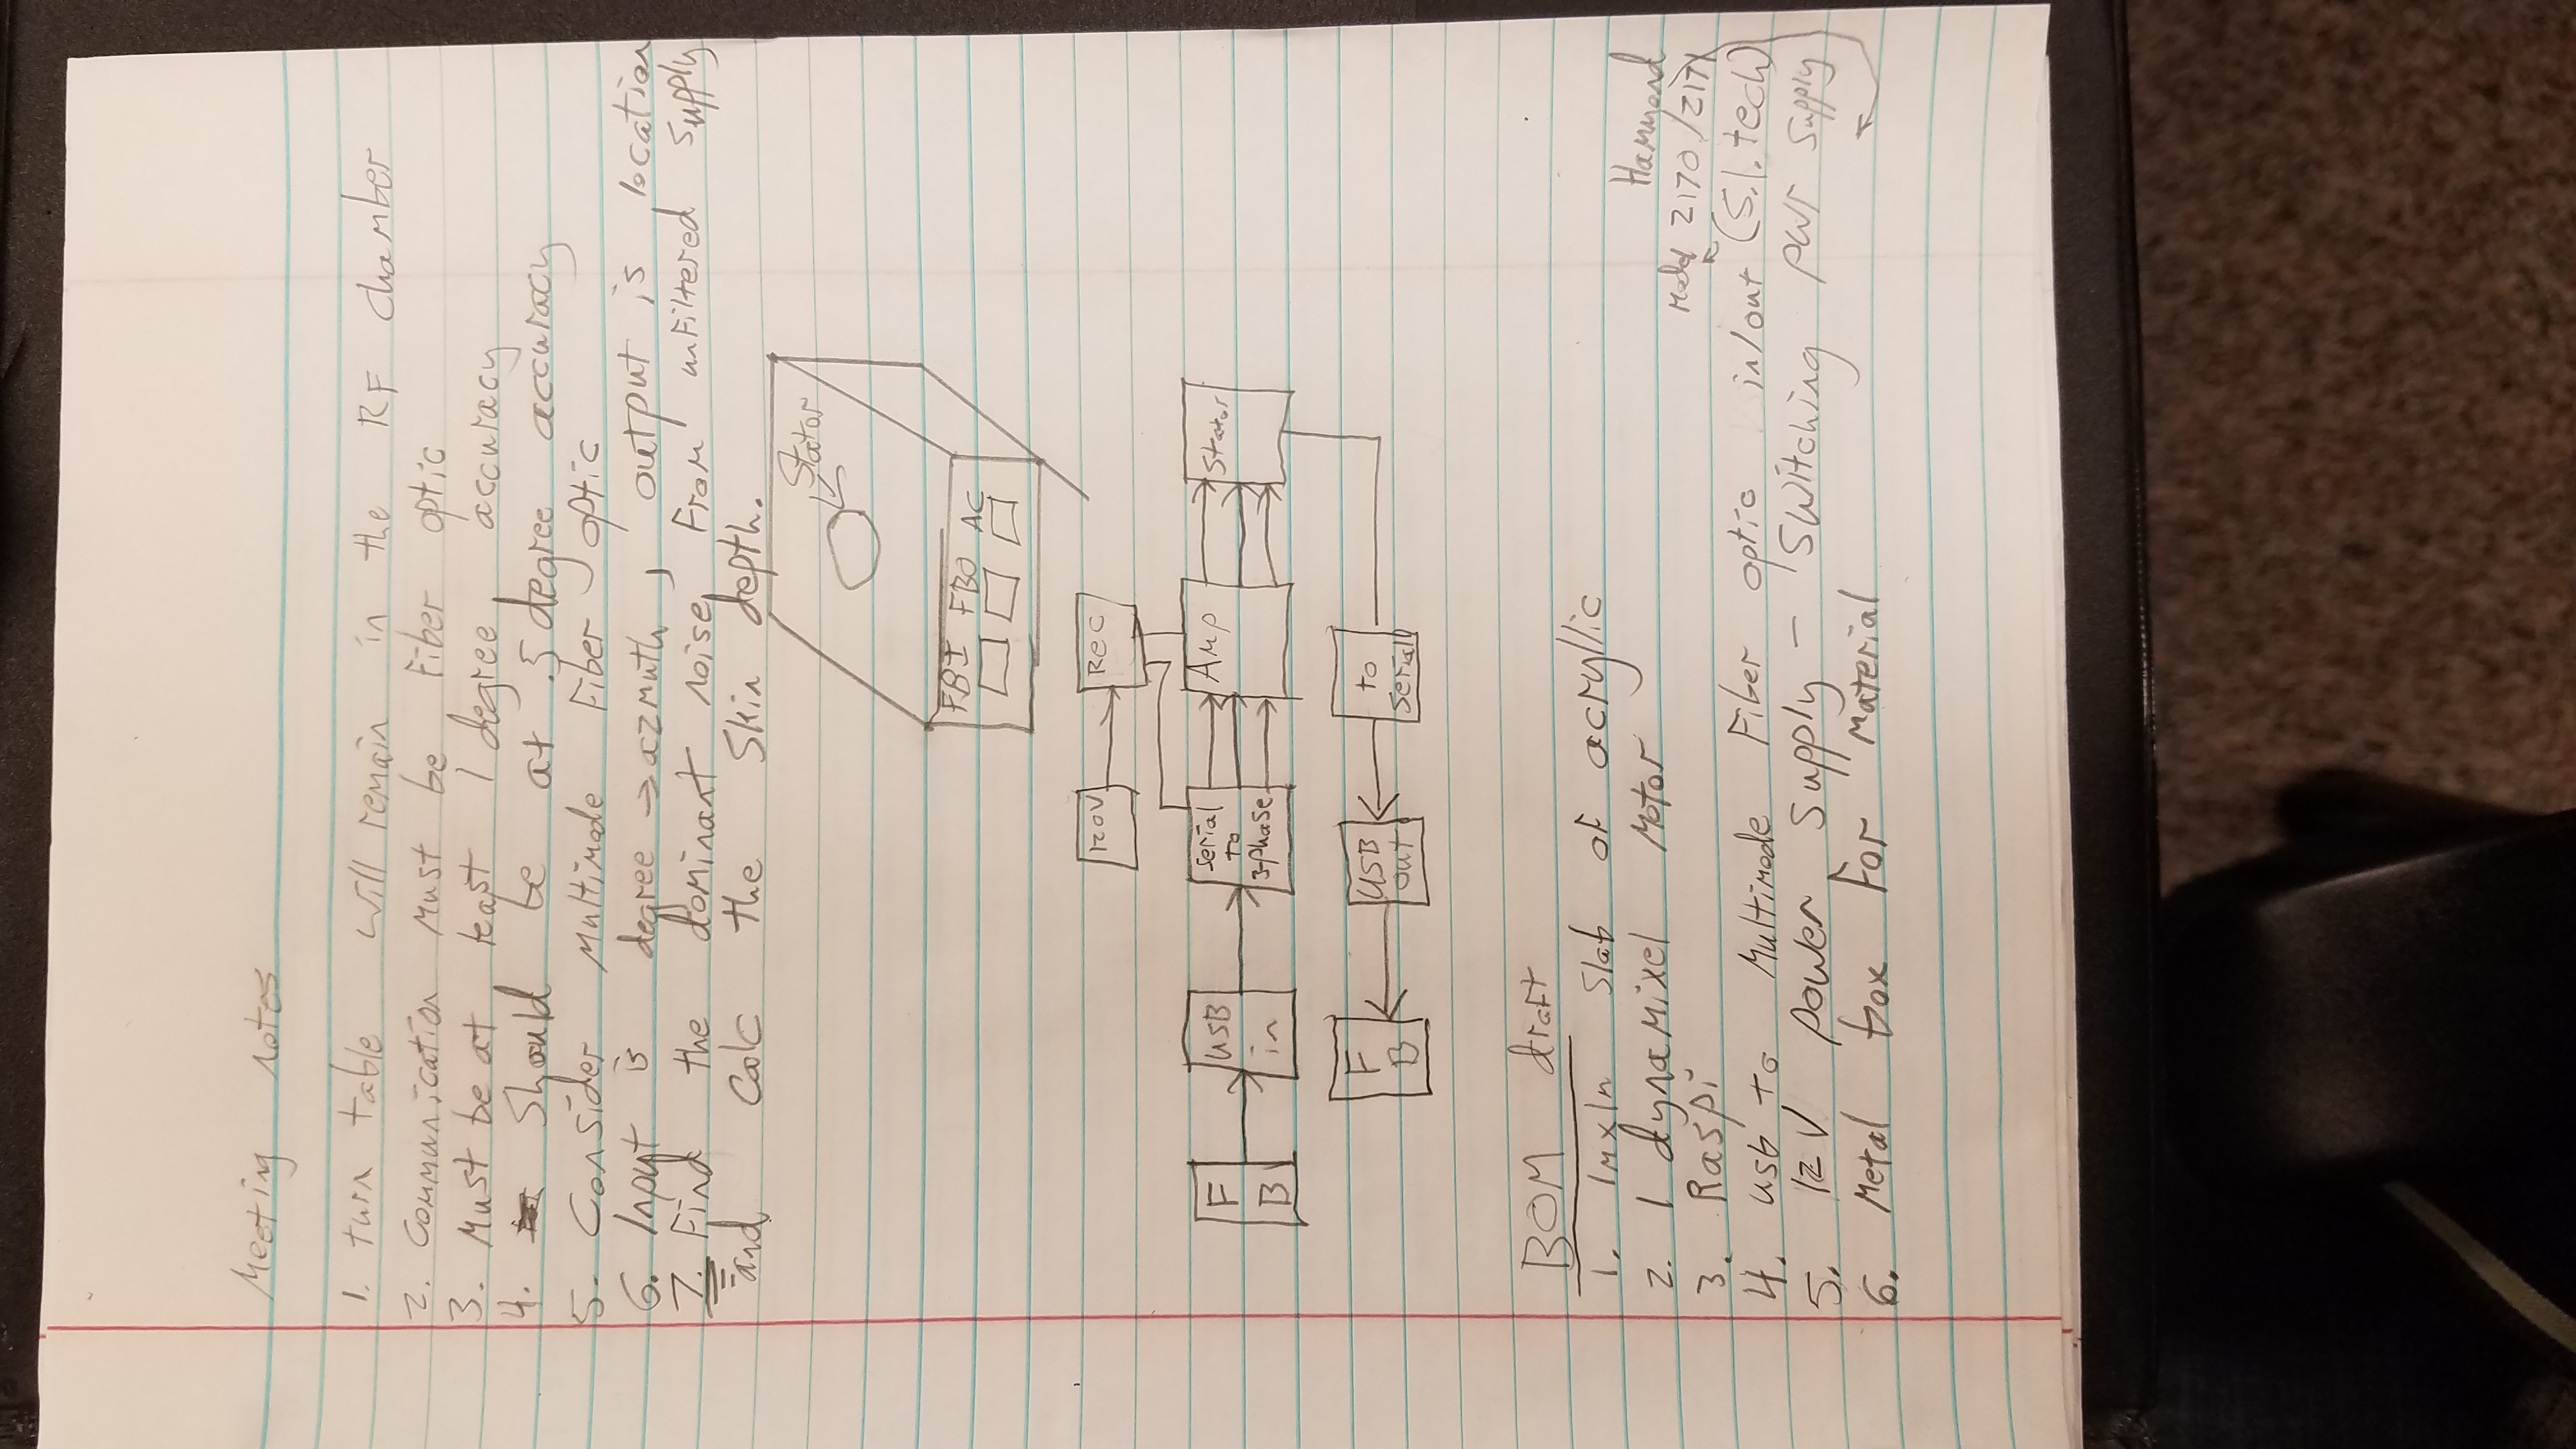 Meeting notes
1. turn table will remain in the RF chamber
2. Communication Must be Fiber optic
3. Must be at least 1 degree accuracy
4. Should be at .5 degree accuracy
5. Consider Multimode Fiber optic
6. Input is degree → azmuth, output is location
7. Find the dominant noise From unFiltered supply
and Calc the Skin depth.
Stator
FBI FBO AC
120V Rec
F B
USB in
Serial to 3-phase
Amp
Stator
F B
USB out
to Serial
BOM draft
1. 1mx1m Slab of acryllic
2. 1 dynamixel Motor
3. Raspi
Hammond
Model 2170/2171
4. usb to Multimode Fiber optic in/out (S.I. tech)
5. 12V power supply - Switching pwr supply
6. Metal box For Material